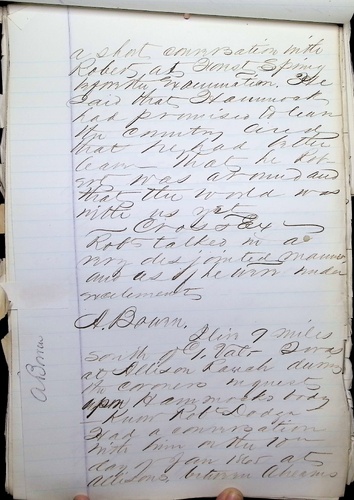 a short conversation with
Robert at Forest Spring
before the examination. He
said that Hammock
had promised to leave
the country and
that he had better
leave. That he Rob
was around and
that the world was
with us yet
Cross Ex
Rob talked in a
very disjointed manner
and as if he were under
excitement
A. Bown.
I live 9 miles
south of
at Allison Ranch during
the coroners inquest
upon Hammocks body
Know Rob Dodge
Had a conversation
with him on the
day of Jan 1865 at
Allisons between
A Bown